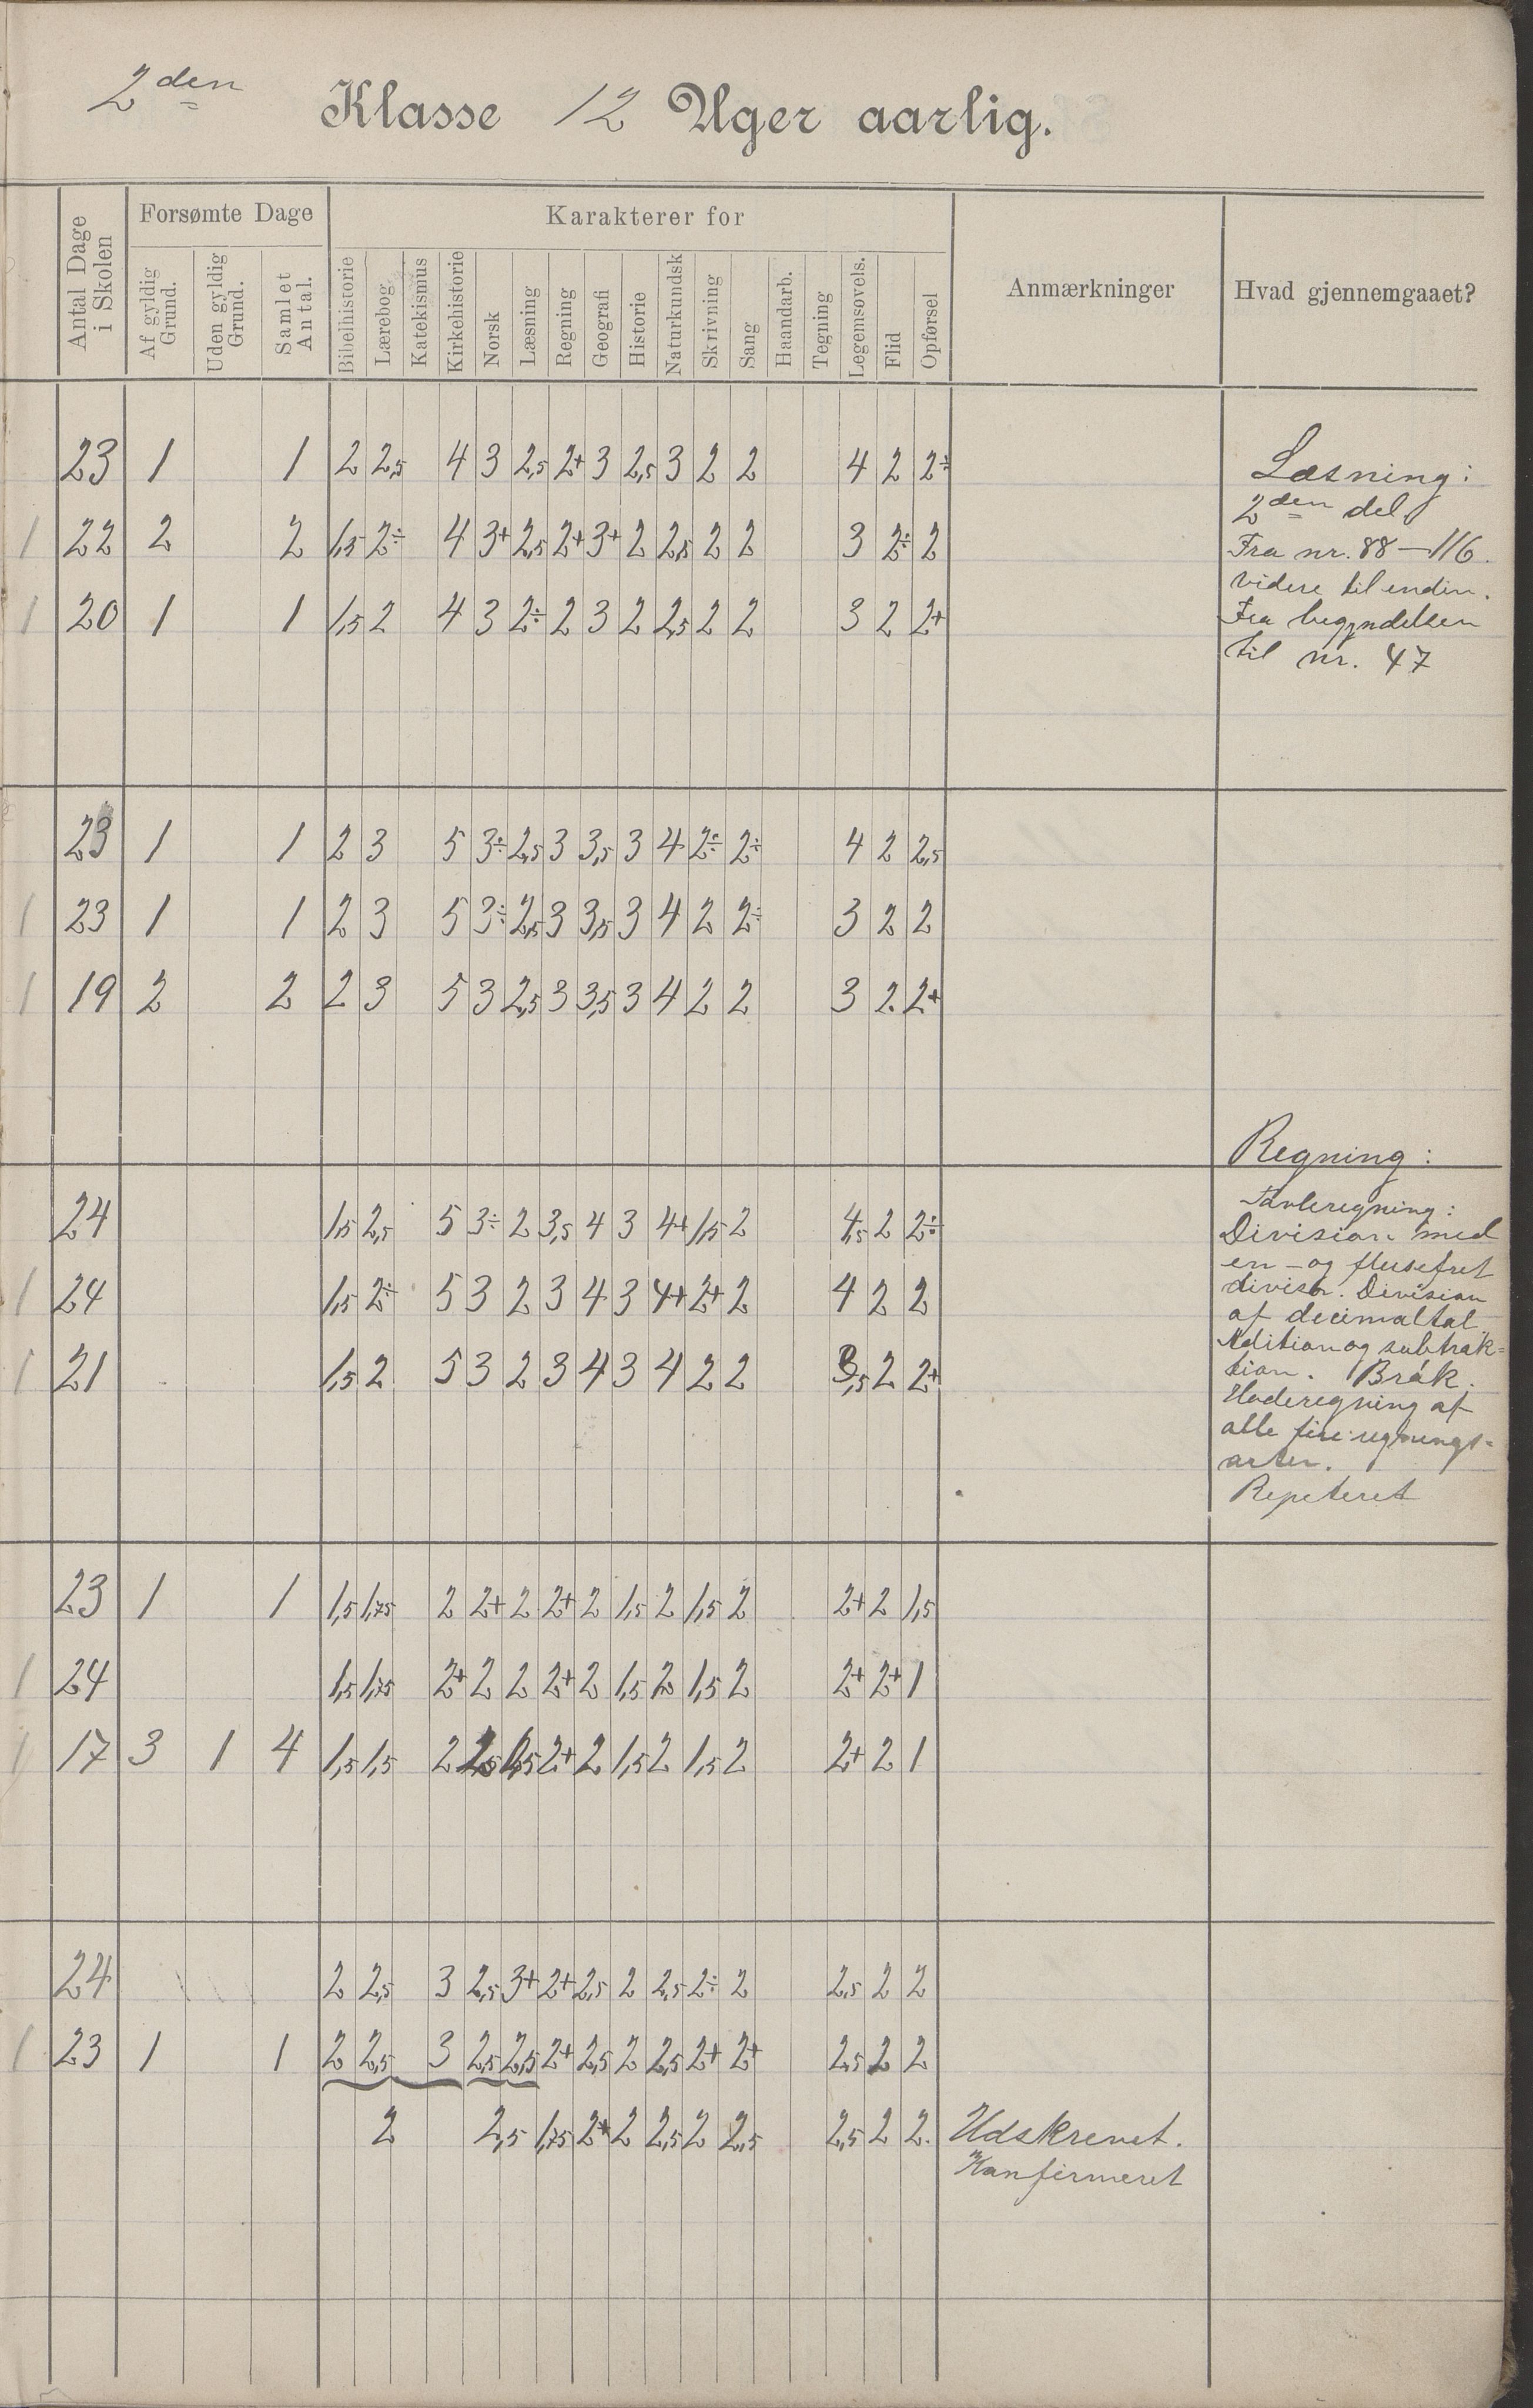 2den Klasse 12 Uger aarlig.
Antal Dage i Skolen
Forsømte Dage
Af gyldig Grund.
Uden gyldig Grund.
Samlet Antal.
Karakterer for
Bibelhistorie
Lærebog.
Katekismus
Kirkehistorie
Norsk
Læsning
Regning
Geografi
Historie
Naturkundsk
Skrivning
Sang
Haandarb.
Tegning
Legemsøvels.
Flid
Opførsel
Anmærkninger
Hvad gjennemgaaet?
23 1 1 2 2,5 4 3 2,5 2+ 3 2,5 3 2 2 4 2 2÷
1 22 2 2 1,5 2÷ 4 3+ 2,5 2+ 3+ 2 2,5 2 2 3 2÷ 2
1 20 1 1 1,5 2 4 3 2÷ 2 3 2 2,5 2 2 3 2 2+
Læsning:
2den del
Fra nr. 88-116.
videre til enden.
Fra begyndelsen
til nr. 47
23 1 1 2 3 5 3÷ 2,5 3 3,5 3 4 2÷ 2÷ 4 2 2,5
1 23 1 1 2 3 5 3÷ 2,5 3 3,5 3 4 2 2÷ 3 2 2
1 19 2 2 2 3 5 3 2,5 3 3,5 3 4 2 2 3 2. 2+
24 1,5 2,5 5 3÷ 2 3,5 4 3 4+ 1,5 2 4,5 2 2÷
1 24 1,5 2÷ 5 3 2 3 4 3 4+ 2+ 2 4 2 2
1 21 1,5 2 5 3 2 3 4 3 4 2 2 3,5 2 2+
Regning:
Tavleregning:
Division med
en- og flersifret
divisor. Division
af decimaltal.
Adition og subtrak=
tion. Brøk.
Hoderegning af
alle fire regnings=
arter.
Repeteret
23 1 1 1,5 1,75 2 2+ 2 2+ 2 1,5 2 1,5 2 2+ 2 1,5
1 24 1,5 1,75 2+ 2 2 2+ 2 1,5 2 1,5 2 2+ 2+ 1
1 17 3 1 4 1,5 1,5 2 1,5 2+ 2 1,5 2 1,5 2 2+ 2 1
24 2 2,5 3 2,5 3+ 2+ 2,5 2 2,5 2÷ 2 2,5 2 2
1 23 1 1 2 2,5 3 2,5 2,5 2+ 2,5 2 2,5 2+ 2+ 2,5 2 2
2 2,5 1,75 2+ 2 2,5 2 2,5 2,5 2 2. Udskrevet.
Konfirmeret